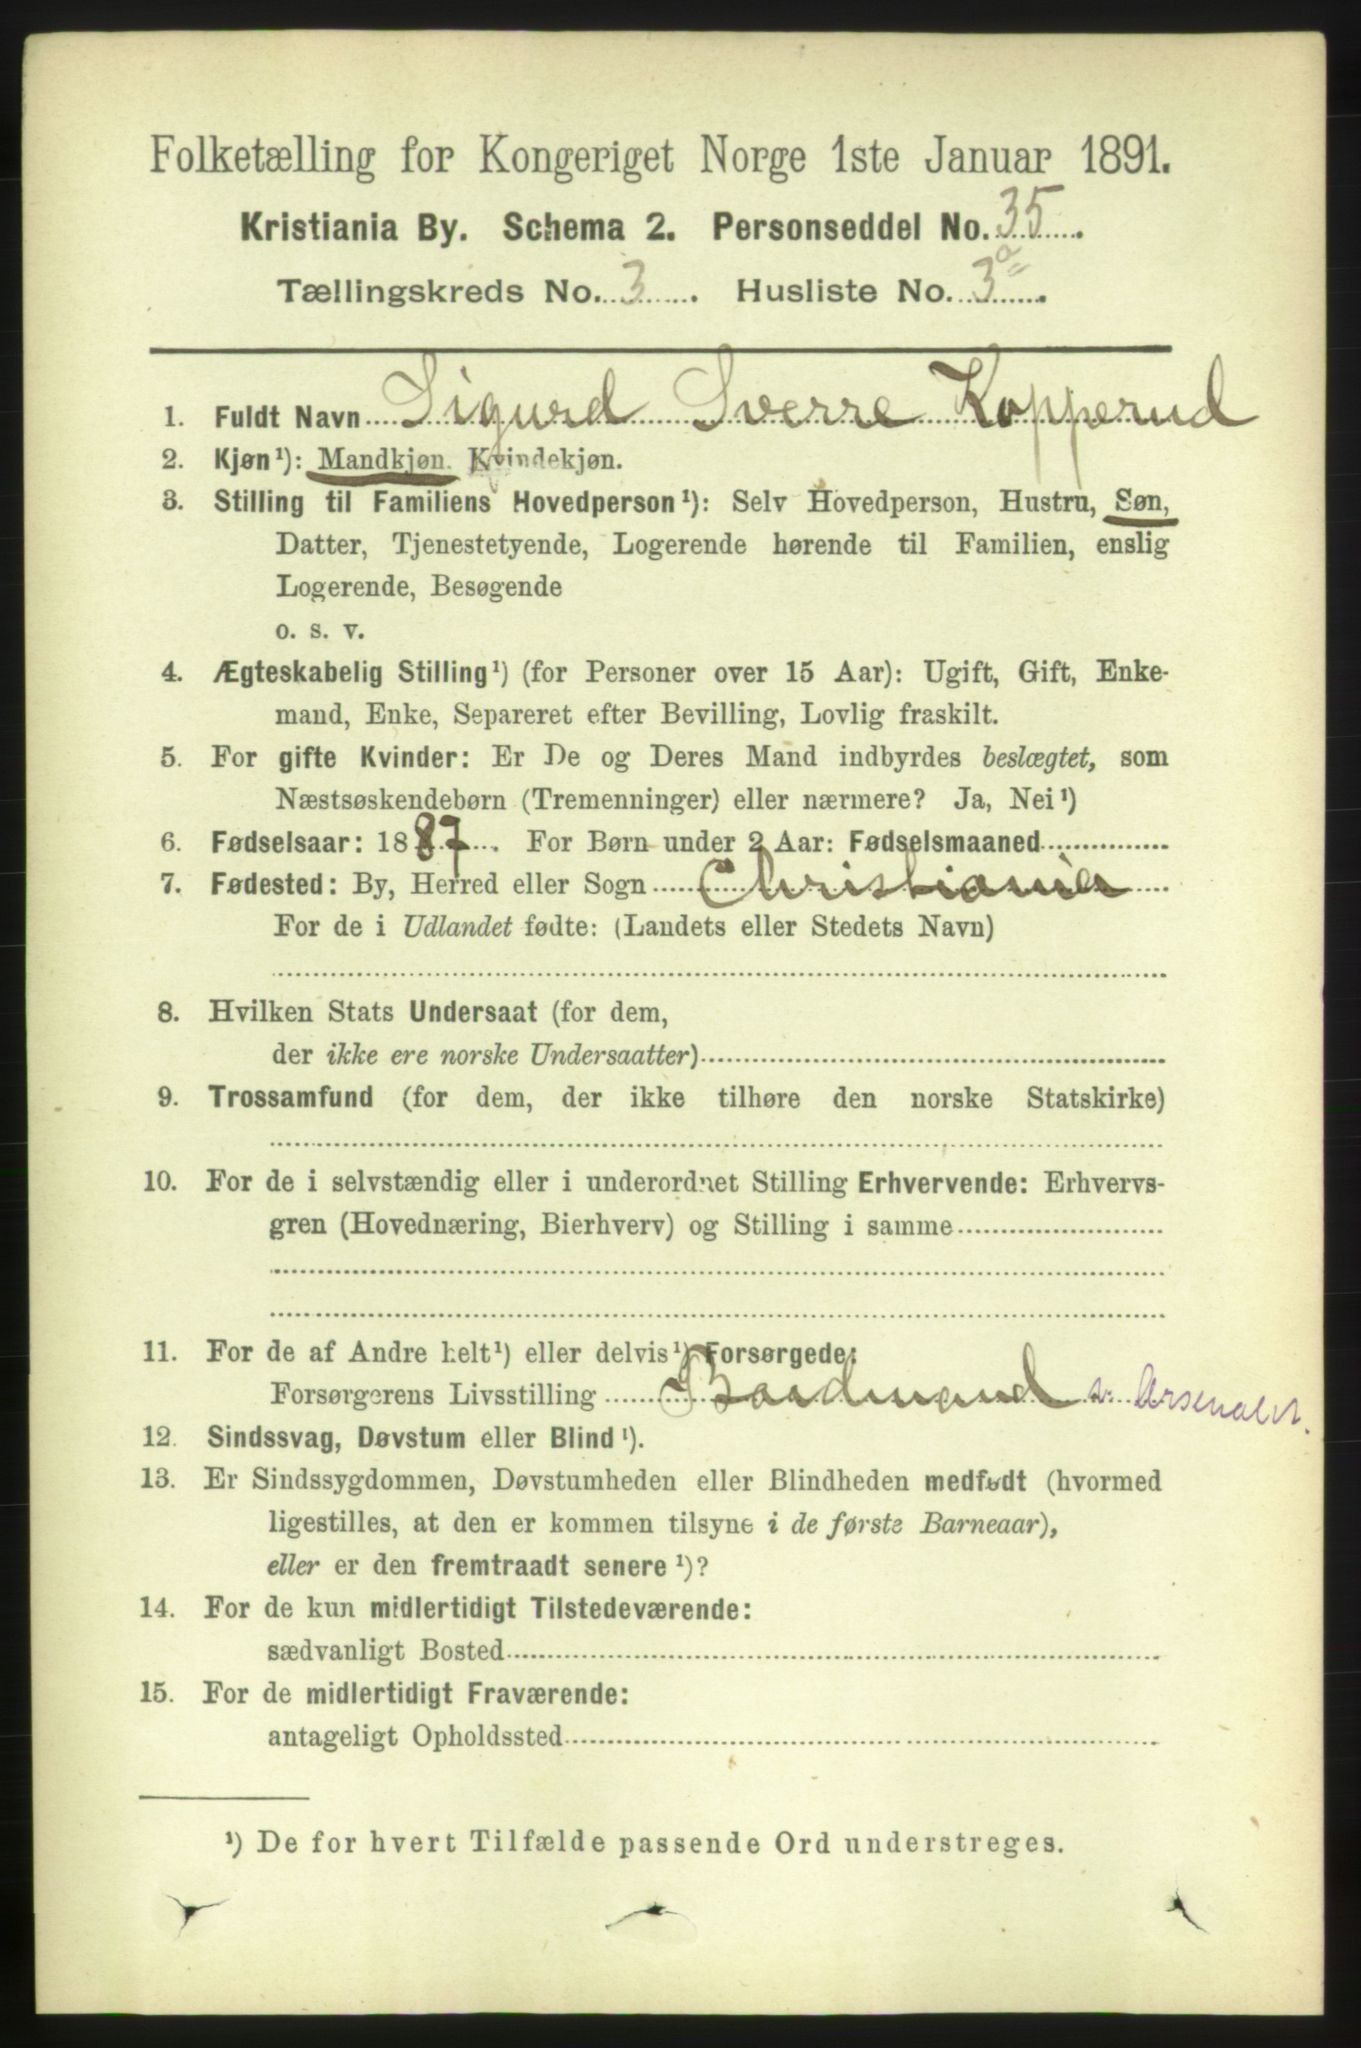 Folketælling for Kongeriget Norge 1ste Januar 1891.
Kristiania By. Schema 2. Personseddel No. 35.
Tællingskreds No. 3. Husliste No. 3a.
1. Fuldt Navn Sigurd Sverre Kopperud
2. Kjøn¹): Mandkjøn. Kvindekjøn.
3. Stilling til Familiens Hovedperson¹): Selv Hovedperson, Hustru, Søn,
Datter, Tjenestetyende, Logerende hørende til Familien, enslig
Logerende, Besøgende
o. s. v.
4. Ægteskabelig Stilling¹) (for Personer over 15 Aar): Ugift, Gift, Enke-
mand, Enke, Separeret efter Bevilling, Lovlig fraskilt.
5. For gifte Kvinder: Er De og Deres Mand indbyrdes beslægtet, som
Næstsøskendebørn (Tremenninger) eller nærmere? Ja, Nei¹)
6. Fødselsaar: 1887. For Børn under 2 Aar: Fødselsmaaned
7. Fødested: By, Herred eller Sogn Christiania
For de i Udlandet fødte: (Landets eller Stedets Navn)
8. Hvilken Stats Undersaat (for dem,
der ikke ere norske Undersaatter)
9. Trossamfund (for dem, der ikke tilhøre den norske Statskirke)
10. For de i selvstændig eller i underordnet Stilling Erhvervende: Erhvervs-
gren (Hovednæring, Bierhverv) og Stilling i samme
11. For de af Andre helt¹) eller delvis¹) Forsørgede:
Forsørgerens Livsstilling Baadmand v. Arsenalet.
12. Sindssvag, Døvstum eller Blind¹).
13. Er Sindssygdommen, Døvstumheden eller Blindheden medfødt (hvormed
ligestilles, at den er kommen tilsyne i de første Barneaar),
eller er den fremtraadt senere¹)?
14. For de kun midlertidigt Tilstedeværende:
sædvanligt Bosted
15. For de midlertidigt Fraværende:
antageligt Opholdssted
¹) De for hvert Tilfælde passende Ord understreges.